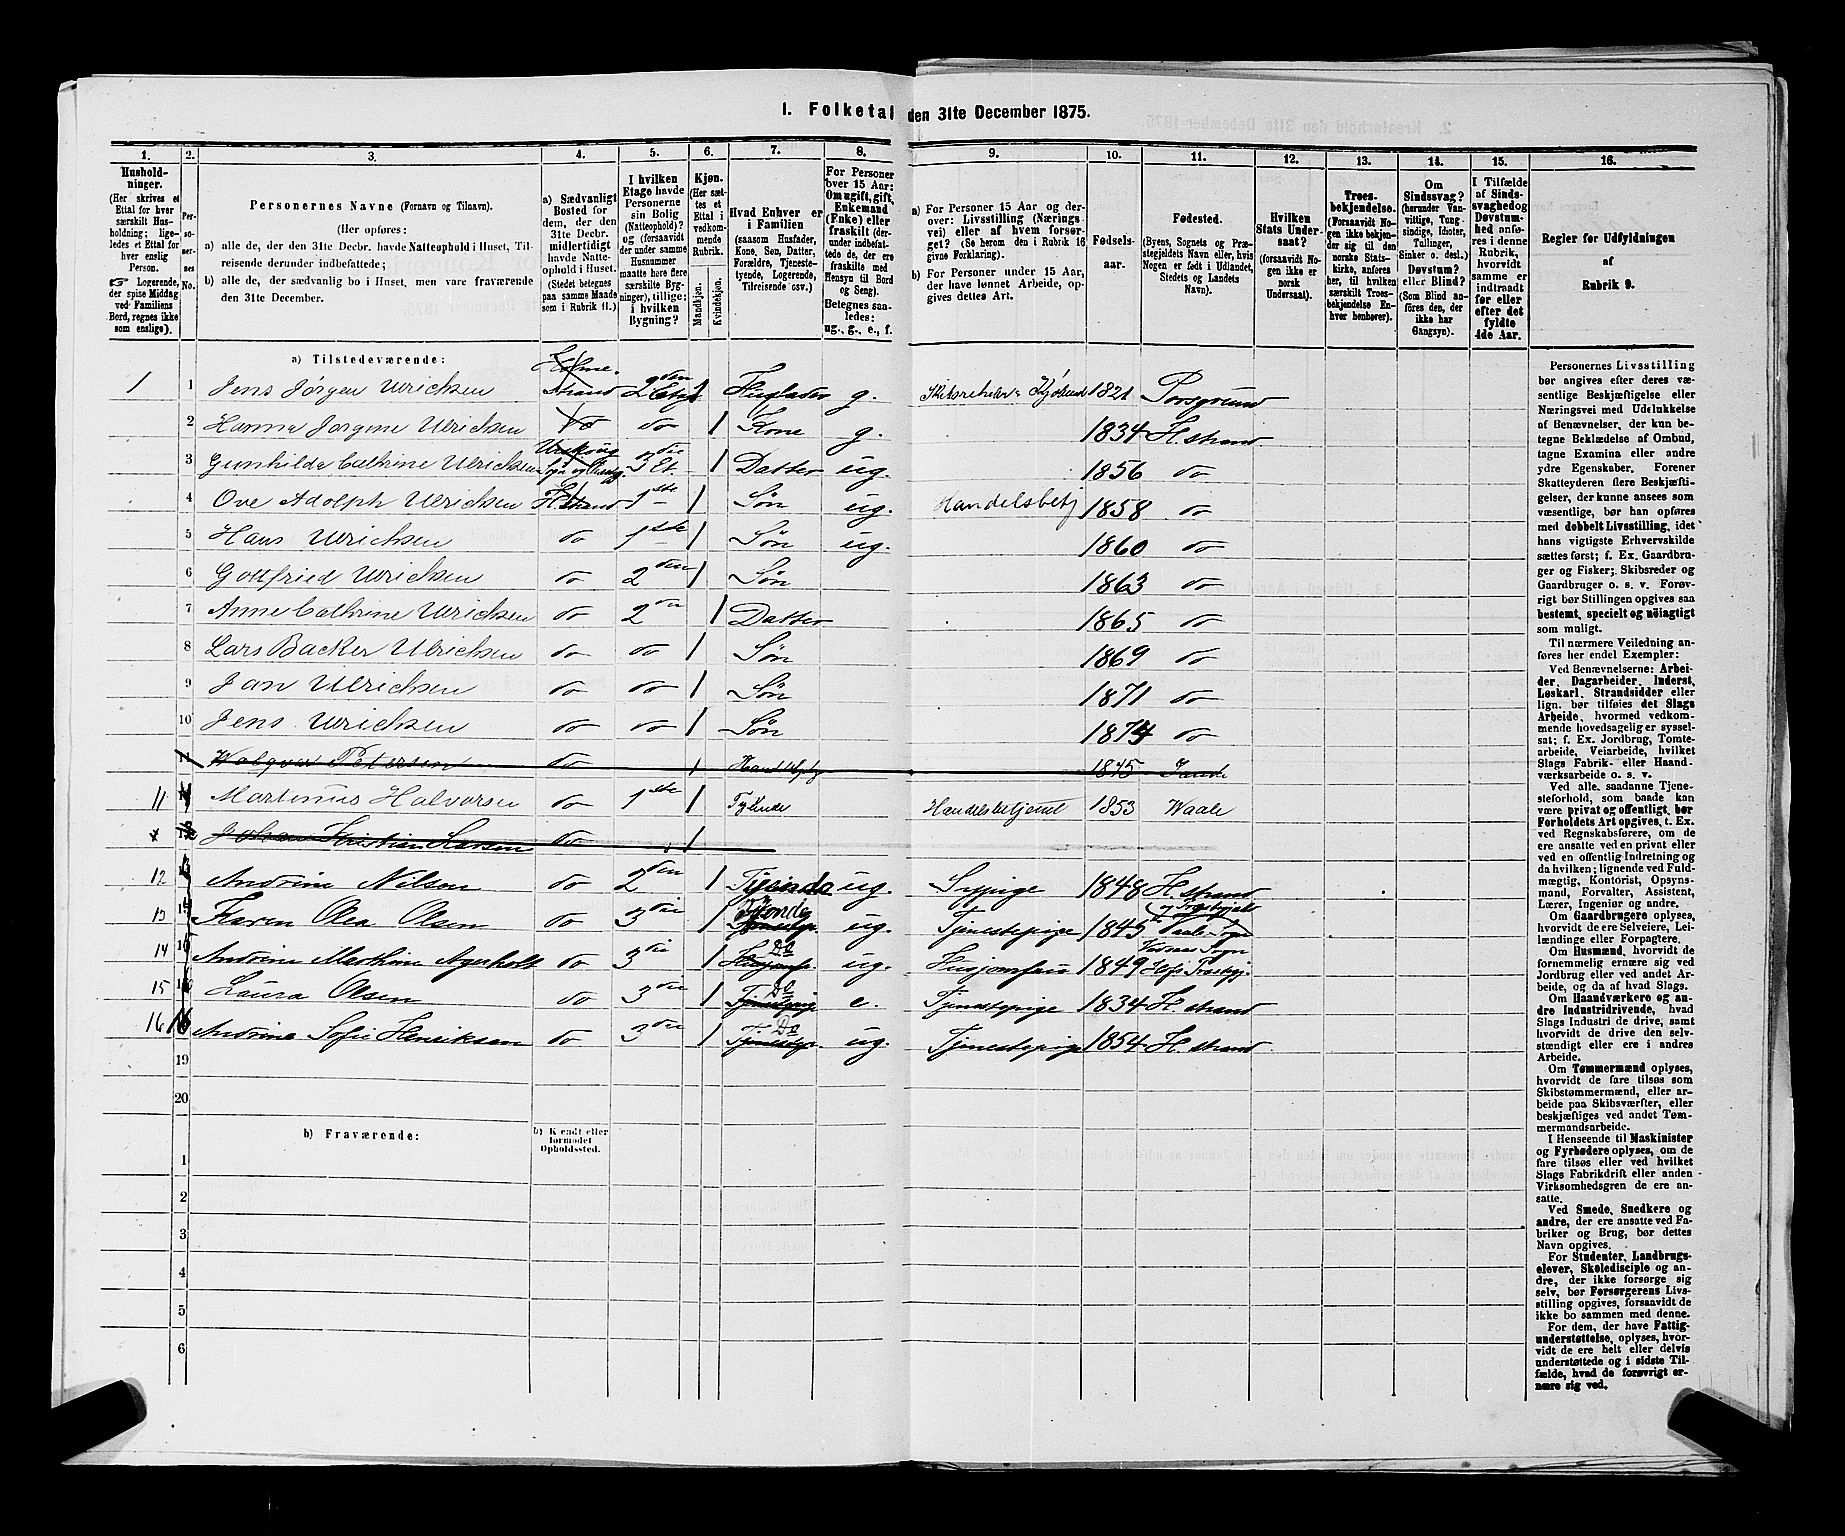 1. Folketal den 31te December 1875.
1. 2. 3. 4. 5. 6. 7. 8. 9. 10. 11. 12. 13. 14. 15. 16.
Hushold-
ninger.
(Her skrives et
Ettal for hver
særskilt Hus-
holdning; lige-
ledes et Ettal for
hver enslig
Person.
☞ Logerende,
der spise Middag
ved Familiens
Bord, regnes ikke
som enslige).
Per-
so-
ner-
nes
No.
Personernes Navne (Fornavn og Tilnavn).
(Her opføres:
a) alle de, der den 31te Decbr. havde Natteophold i Huset, Til-
reisende derunder indbefattede;
b) alle de, der sædvanlig bo i Huset, men vare fraværende
den 31te December.
a) Sædvanligt
Bosted for
dem, der den
31te Decbr.
midlertidigt
havde Natte-
ophold i Huset.
(Stedet betegnes
paa samme Maade
som i Rubrik 11.)
I hvilken
Etage havde
Personerne
sin Bolig
(Natteophold)?
og (forsaavidt
der under samme
Husnummer
maatte høre flere
særskilte Byg-
ninger), tillige:
i hvilken
Bygning?
Kjøn.
(Her sæt-
tes et
Ettal i
vedkom-
mende
Rubrik.
Mandkjøn.
Kvindekjøn.
Hvad Enhver er
i Familien
(saasom Husfader,
Kone, Søn, Datter,
Forældre, Tjeneste-
tyende, Logerende,
Tilreisende osv.)
For Personer
over 15 Aar:
Om ugift, gift,
Enkemand
(Enke) eller
fraskilt (der-
under indbefat-
tede de, der ere
fraskilte med
Hensyn til Bord
og Seng).
Betegnes saa-
ledes:
ug., g., e., f.
a) For Personer 15 Aar og der-
over: Livsstilling (Nærings-
vei) eller af hvem forsør-
get? (Se herom den i Rubrik 16
givne Forklaring).
b) For Personer under 15 Aar,
der have lønnet Arbeide, op-
gives dettes Art.
Fødsels-
aar.
Fødested.
(Byens, Sognets og Præ-
stegjeldets Navn eller, hvis
Nogen er født i Udlandet,
Stedets og Landets
Navn).
Hvilken
Stats Under-
saat?
(forsaavidt No-
gen ikke er
norsk
Undersaat).
Troes-
bekjendelse.
(Forsaavidt No-
gen ikke bekjen-
der sig til den
norske Stats-
kirke, anføres
her, til hvilken
særskilt Troes-
bekjendelse En-
hver henhører).
Om
Sindssvag?
(herunder Van-
vittige, Tung-
sindige, Idioter,
Tullinger,
Sinker o. desl.)
Døvstum?
eller Blind?
(Som Blind an-
føres den, der
ikke har
Gangsyn).
I Tilfælde
af Sinds-
svaghed og
Døvstum-
hed anfø-
res i denne
Rubrik,
hvorvidt
samme er
indtraadt
før eller
efter det
fyldte
4de Aar.
Regler for Udfyldningen
af
Rubrik 9.
a) Tilstedeværende:
1 1 Jens Jørgen Ulrichsen Holme-strand 2den Etage 1 Huusfader g. 1821 Porsgrund
2 Hanna Jørgine Ulrichsen do do 1 Kone g. 1834 H.strand
3 Gunhilde Cathrine Ulrichsen 3die Et. 1 Datter ug. 1856 do
4 Ove Adolph Ulrichsen H.strand 1ste 1 Søn ug. Handelsbetj 1858 do
5 Hans Ulrichsen do 1ste 1 Søn ug. 1860 do
6 Gottfried Ulrichsen do 2den 1 Søn 1863 do
7 Anne Cathrine Ulrichsen do 2den 1 Datter 1865 do
8 Lars Backer Ulrichsen do do 1 Søn 1869 do
9 Jan Ulrichsen do do 1 Søn 1871 do
10 Jens Ulrichsen do do 1 Søn 1874 do
Petersen do 1 1845
11 Martinus Halvorsen do 1ste 1 Tyende Handelsbetjent 1853 Waale
Johan Kristian Larsen do 1
12 13 Andrine Nilsen do 2den 1 Tyende ug. Sypige 1848 H.strand
13 14 Karen Olea Olsen do 3die 1 Tyende ug. Tjenestepige 1845 Vaale Sogn og Præstegjæld
14 15 Andrine Mathine Agerholt do 3die 1 Do Husjomfru ug. Husjomfru 1849 Sogn Hofs Præstegj.
15 Laura Olsen do 3die 1 Do e. Tjenestepige 1834 H.strand
16 Andrine Sofie Henriksen do 3die 1 Do ug. Tjenestepige 1854 H.strand
19
20
b) Fraværende:
b) Kjendt eller
formodet
Opholdssted.
1
2
3
4
5
6
Personernes Livsstilling
bør angives efter deres væ-
sentlige Beskjæftigelse eller
Næringsvei med Udelukkelse
af Benævnelser, der kun be-
tegne Beklædelse af Ombud,
tagne Examina eller andre
ydre Egenskaber. Forener
Skatteyderen flere Beskjæfti-
gelser, der kunne ansees som
væsentlige, bør han opføres
med dobbelt Livsstilling, idet
hans vigtigste Erhvervskilde
sættes først; f. Ex. Gaardbru-
ger og Fisker; Skibsreder og
Gaardbruger o. s. v. Forøv-
rigt bør Stillingen opgives saa
bestemt, specielt og nøiagtigt
som muligt.
Til nærmere Veiledning an-
føres her endel Exempler:
Ved Benævnelserne: Arbei-
der, Dagarbeider, Inderst,
Løskarl, Strandsidder eller
lign. bør tilføies det Slags
Arbeide, hvormed vedkom-
mende hovedsagelig er syssel-
sat; f. Ex. Jordbrug, Tomte-
arbeide, Veiarbeide, hvilket
Slags Fabrik- eller Haand-
værksarbeide o. s. v.
Ved alle, saadanne Tjene-
steforhold, som baade kan
være privat og offentligt, bør
Forholdets Art opgives, t. Ex.
ved Regnskabsførere, om de
ere ansatte ved en privat eller
ved en offentlig Indretning og
da hvilken; lignende ved Fuld-
mægtig, Kontorist, Opsyns-
mand, Forvalter, Assistent,
Lærer, Ingeniør og andre.
Om Gaardbrugere oplyses,
hvorvidt de ere Selveiere, Lei-
lændinge eller Forpagtere.
Om Husmænd, hvorvidt de
fornemmelig ernære sig ved
Jordbrug eller ved andet Ar-
beide, og da af hvad Slags.
Om Haandværkere og an-
dre Industridrivende, hvad
Slags Industri de drive, samt
hvorvidt de drive den selv-
stændigt eller ere i andres
Arbeide.
Om Tømmermænd oplyses,
hvorvidt de fare tilsøs som
Skibstømmermænd, eller ar-
beide paa Skibsværfter, eller
beskjæftiges ved andet Tøm-
mermandsarbeide.
I Henseende til Maskinister
og Fyrbødere oplyses, om de
fare tilsøs eller ved hvilket
Slags Fabrikdrift eller anden
Virksomhedsgren de ere an-
satte.
Ved Smede, Snedkere og
andre, der ere ansatte ved Fa-
briker og Brug, bør dettes
Navn opgives.
For Studenter, Landbrugs-
elever, Skoledisciple og an-
dre, der ikke forsørge sig
selv, bør Forsørgerens Livs-
stilling opgives, forsaavidt de
ikke bo sammen med denne.
For dem, der have Fattig-
understøttelse, oplyses, hvor-
vidt de ere helt eller delvis
understøttede og i sidste Til-
fælde, hvad de forøvrigt er-
nære sig ved.